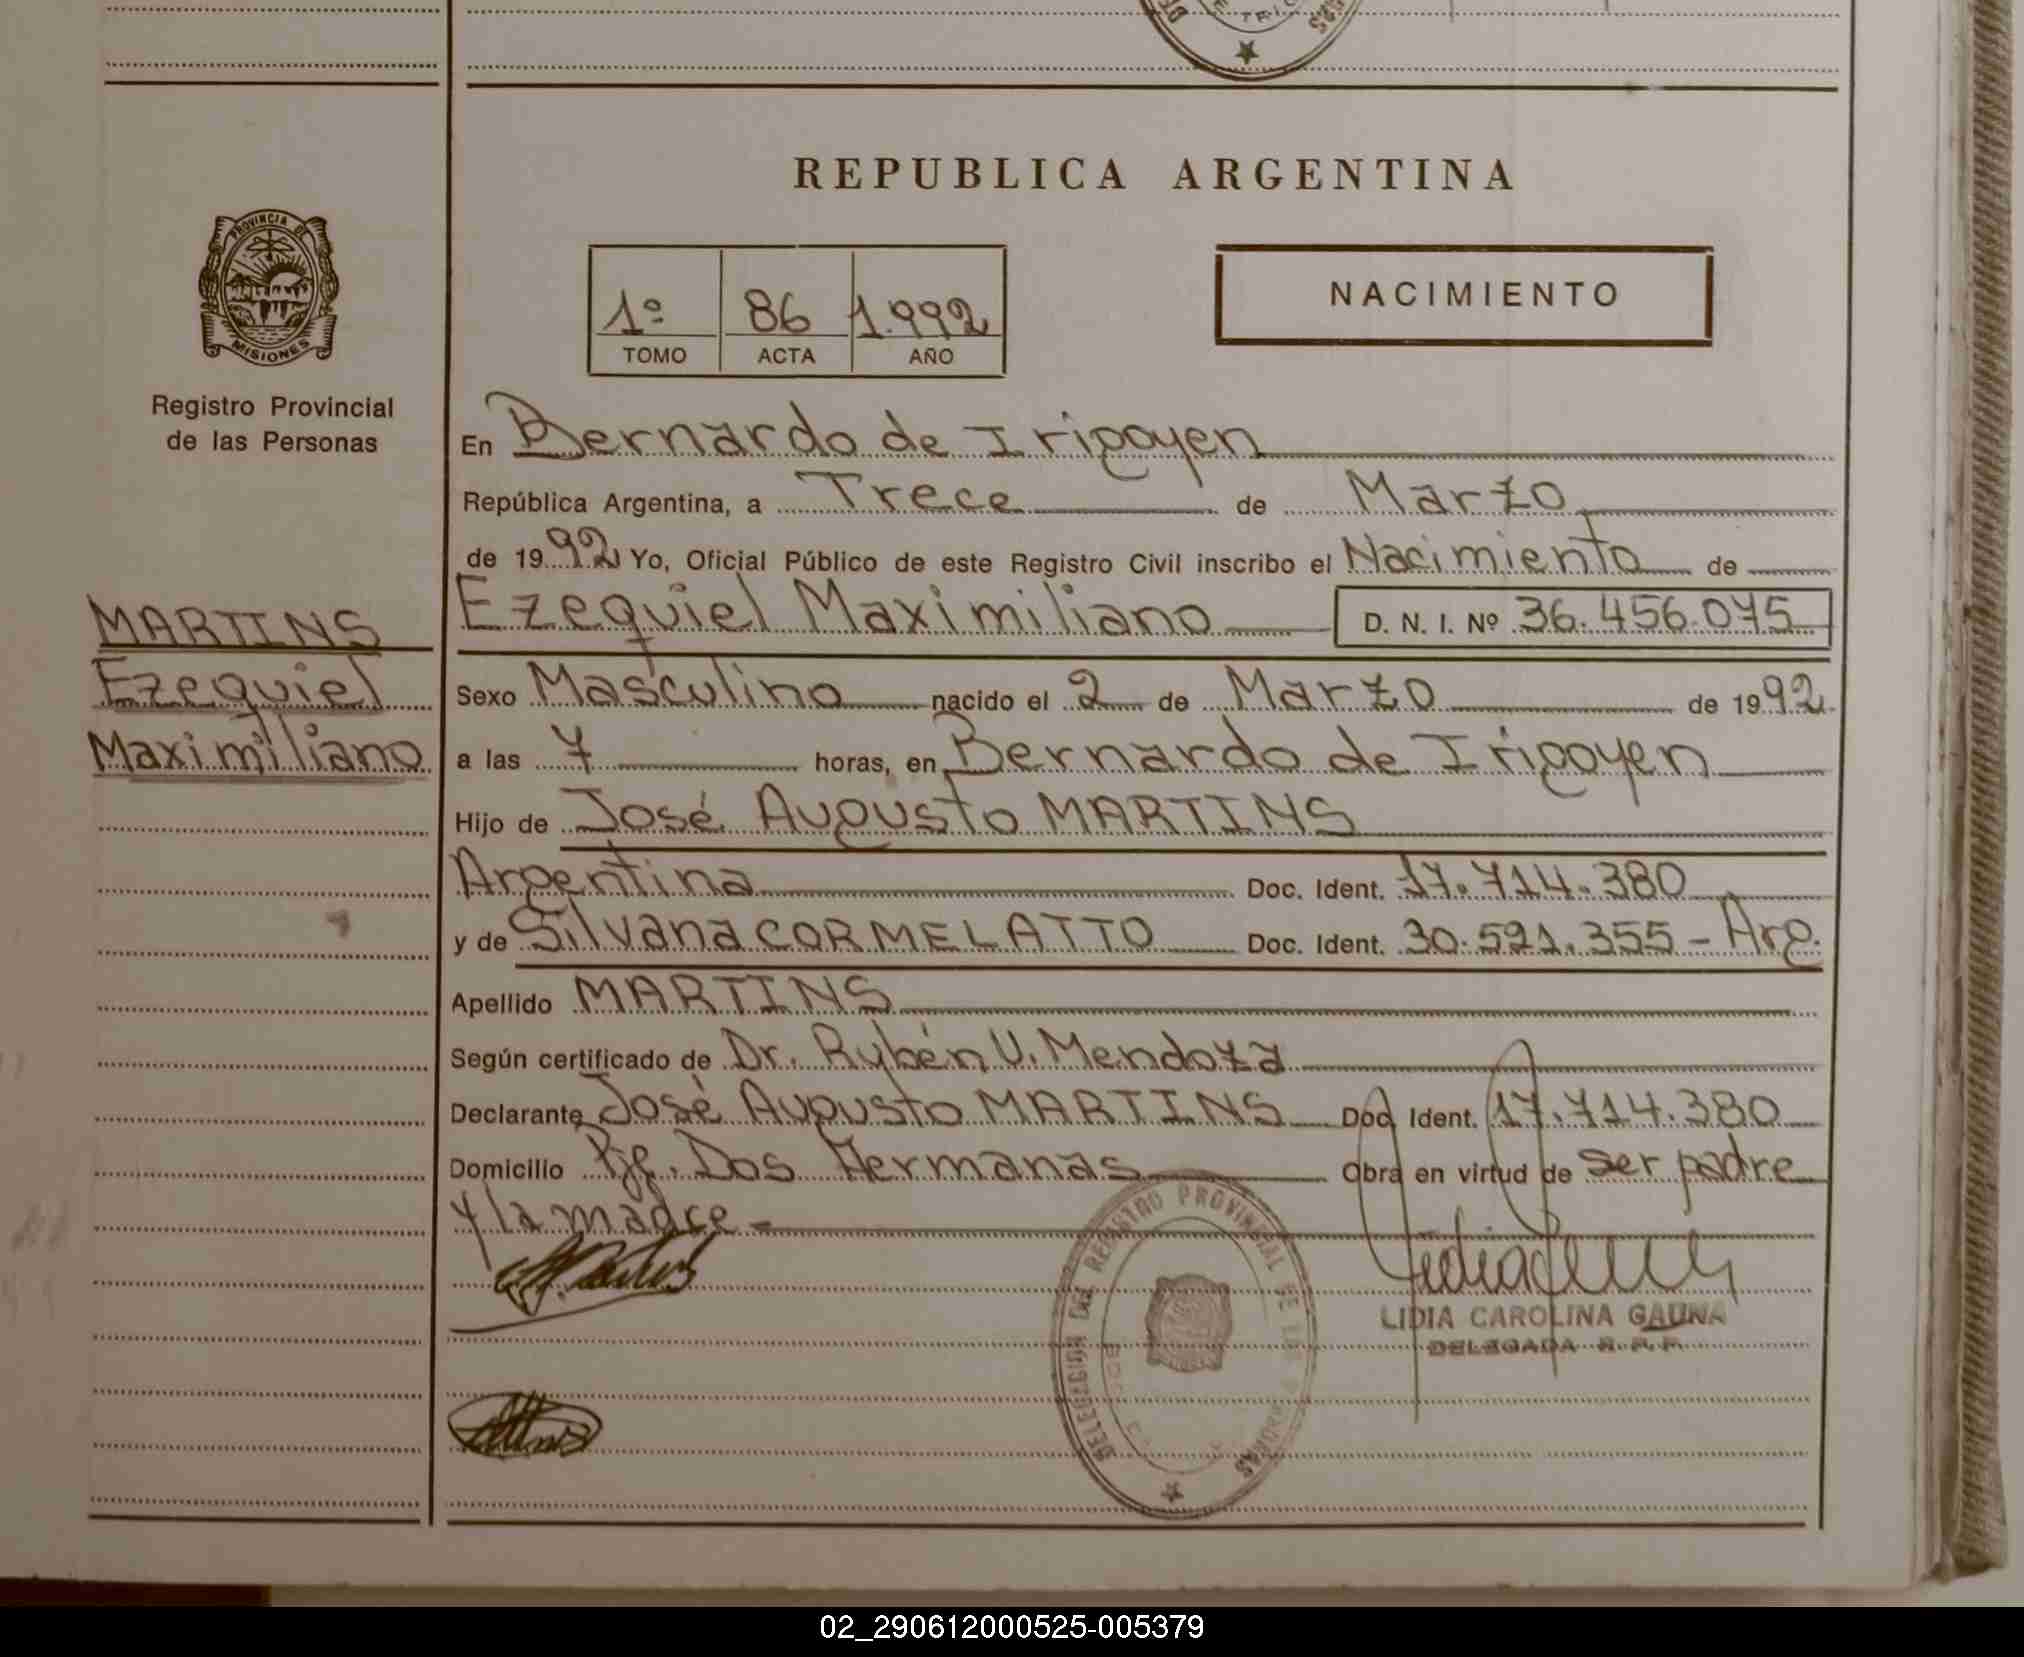 REPUBLICA ARGENTINA
PROVINCIA DE
MISIONES
Registro Provincial
de las Personas
1º 86 1.992
TOMO ACTA AÑO
NACIMIENTO
En Bernardo de Irigoyen
República Argentina, a Trece de Marzo
de 1992 Yo, Oficial Público de este Registro Civil inscribo el Nacimiento de
MARTINS
Ezequiel
Maximiliano
Ezequiel Maximiliano D. N. I. Nº 36.456.075
Sexo Masculino nacido el 2 de Marzo de 1992
a las 7 horas, en Bernardo de Irigoyen
Hijo de José Augusto MARTINS
Argentina Doc. Ident. 17.714.380
y de Silvana CORMELATTO Doc. Ident. 30.521.355 - Arg.
Apellido MARTINS
Según certificado de Dr. Rubén V. Mendoza
Declarante José Augusto MARTINS Doc. Ident. 17.714.380
Domicilio Pje. Dos Hermanas Obra en virtud de ser padre
y la madre -
DELEGACION DEL REGISTRO PROVINCIAL DE LAS PERSONAS
LIDIA CAROLINA GAUNA
DELEGADA R. P. P.
02_290612000525-005379